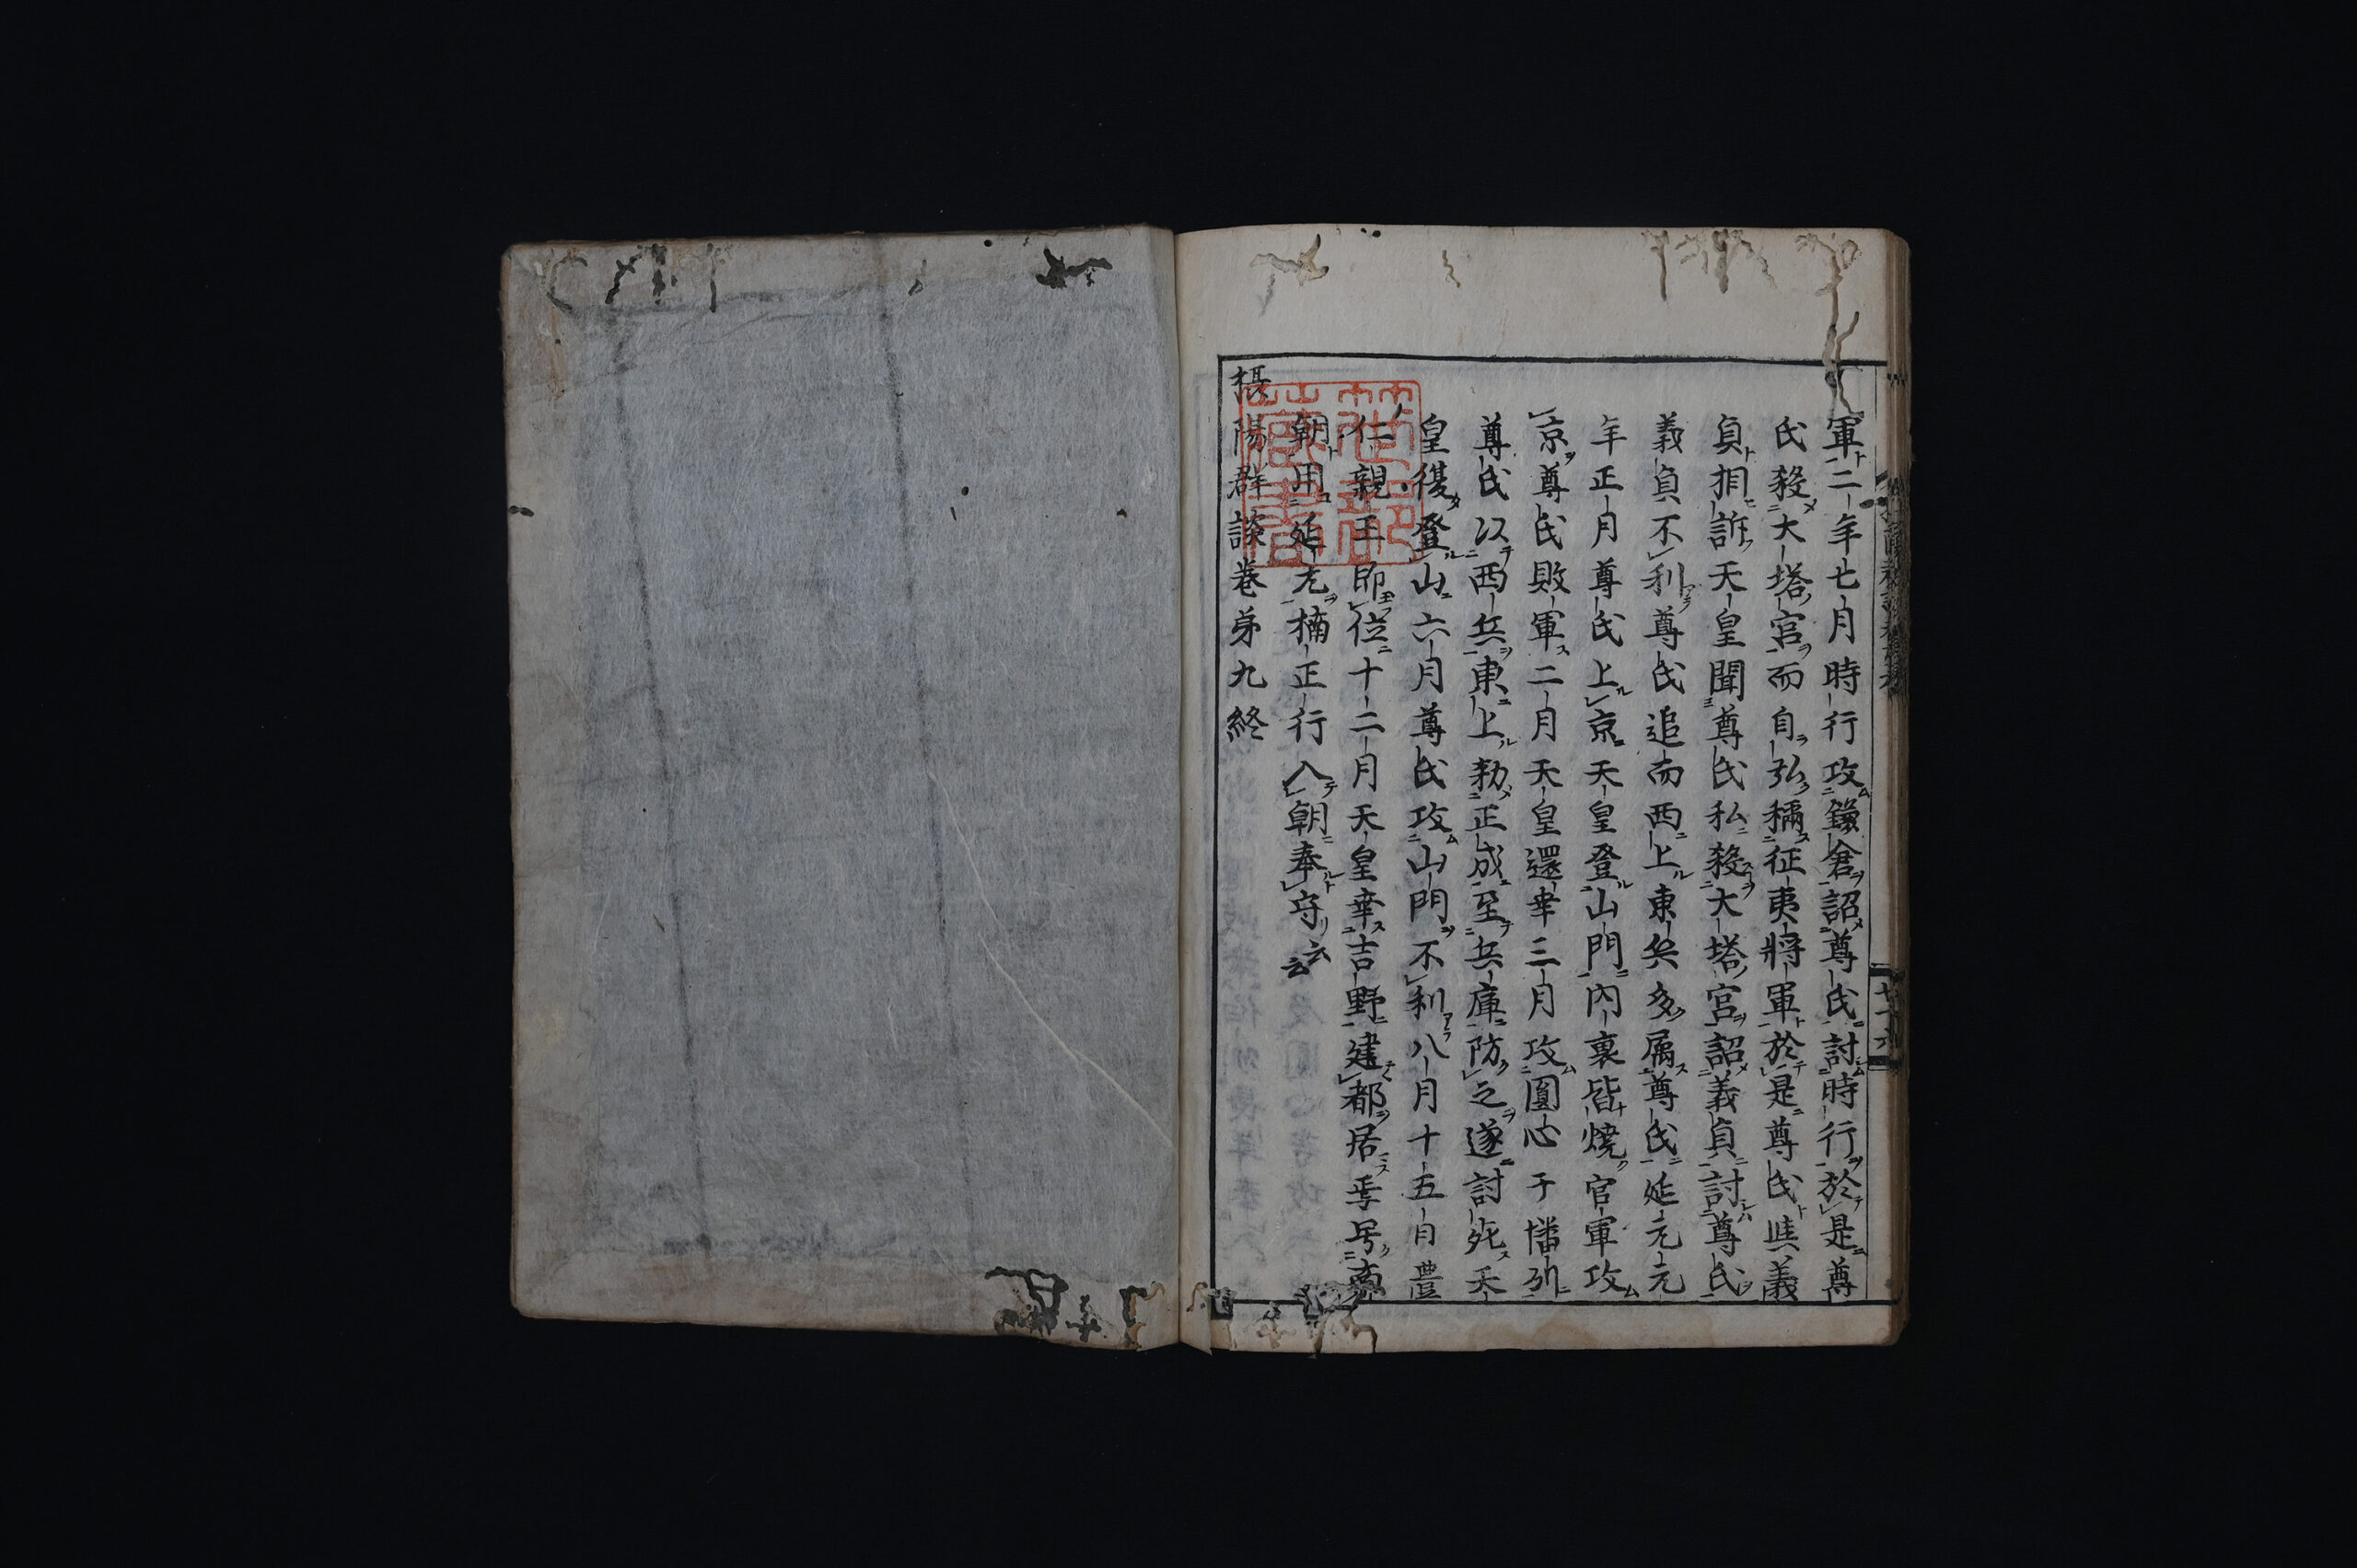 軍二年七月時行攻鎌倉詔尊氏討時行於是尊
氏殺大塔宮而自弘稱征夷將軍於是尊氏與義
貞相訴天皇聞尊氏私殺大塔宮詔義貞討尊氏
義貞不利尊氏追而西上東兵多属尊氏延元元
年正月尊氏上京天皇登山門內裏皆燒官軍攻
京尊氏敗軍二月天皇還幸三月攻圓心于播州
尊氏以西兵東上勅正成至兵庫防之遂討死天
皇復登山六月尊氏攻山門不利八月十五日豊
仁親王即位十二月天皇幸吉野建都居焉号南
朝用延元楠正行入朝奉守云云
摂陽群談巻第九終